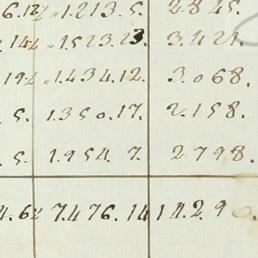 6.12½ 1.213.5. 2845.
14½ 1.523.23 3.421.
19½ 1.434.12. 3.068.
5. 1350.17. 2.158.
5. 1.954.7. 2.798.
4.6½ 7.476.14 14.290.